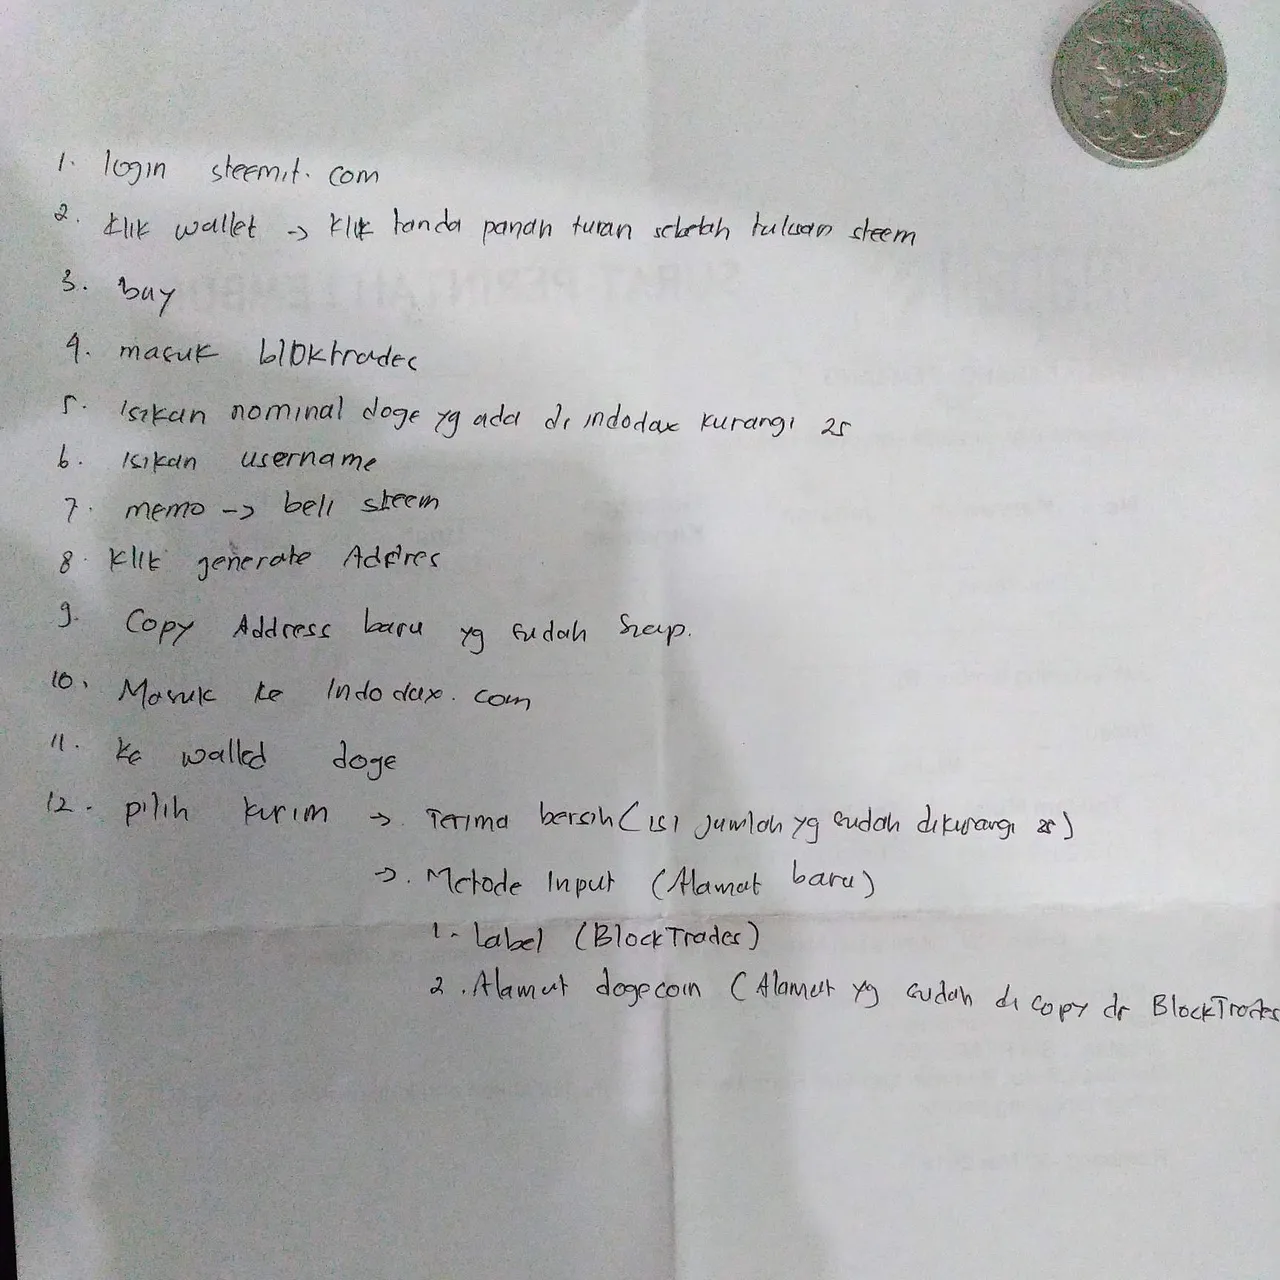 500
1. login steemit.com
2. klik wallet -> klik tanda panah turun sebelah tulisan steem
3. buy
4. masuk bloktrades
5. Isikan nominal doge yg ada di indodax kurangi 25
6. Isikan username
7. memo -> beli steem
8. Klik generate Addres
9. Copy Address baru yg sudah siap.
10. Masuk ke Indodax.com
11. ke walled doge
12. pilih kirim -> Terima bersih (isi jumlah yg sudah dikurangi 25)
->. Metode Input (Alamat baru)
1. Label (BlockTrades)
2. Alamat dogecoin (Alamat yg sudah di copy dr BlockTrades
SURAT PERINTAH LEMBUR